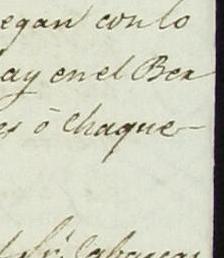 egan con lo
ay en el Ber
es ó chaque-